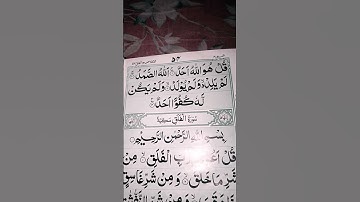 ۵۴
قُلْ هُوَ اللّٰهُ اَحَدٌ اَللّٰهُ الصَّمَدُ
لَمْ يَلِدْ وَلَمْ يُوْلَدْ وَلَمْ يَكُنْ
لَّهٗ كُفُوًا اَحَدٌ
سُوْرَةُ الْفَلَقِ مَكِّيَّةٌ
بِسْمِ اللّٰهِ الرَّحْمٰنِ الرَّحِيْمِ
قُلْ اَعُوْذُ بِرَبِّ الْفَلَقِ مِنْ
شَرِّ مَا خَلَقَ وَمِنْ شَرِّ غَاسِقٍ
وَمِنْ شَرِّ النَّفّٰثٰتِ